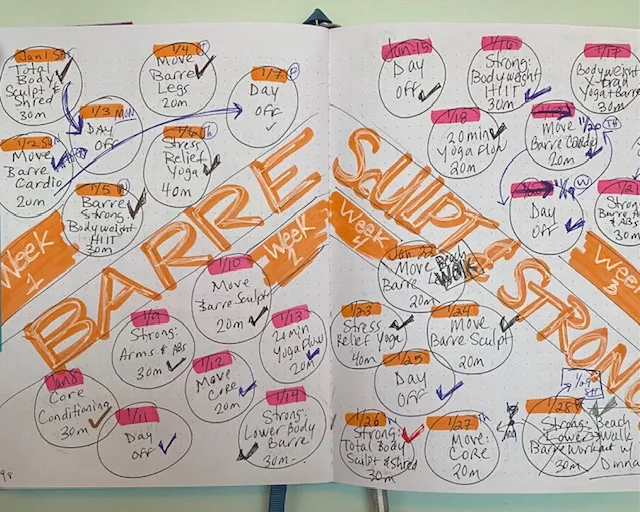 Jan 1
Total
Body
Sculpt &
Shred
30m
1/2
Move
Barre Cardio
20m
1/3 MON
DAY
OFF
1/4 T
Move
Barre
Legs
20m
1/5 W
Barre
Strong
Bodyweight
HIIT
30m
1/6 Th
Stress
Relief
Yoga
40m
1/7 F
Day
Off
Week
1
BARRE
Week
2
Jan 8
Core
Conditioning
30m
1/9
Strong:
Arms & ABs
30m
1/10
Move
Barre Sculpt
20m
1/11
Day
Off
1/12
Move
Core
20m
1/13
20min
Yoga Flow
20m
1/14
Strong:
Lower Body
Barre
30m
98
Jan. 15
Day
Off
1/16
Strong:
Bodyweight
HIIT
30m
1/17
Bodyweight
Yoga + Barre
30m
1/18
20min
Yoga Flow
20m
1/20 TH
Move
Barre Cardio
20m
W
Day
Off
Strong
Barre
& ABs
30m
SCULPT &
STRONG
Week
3
Week
4
Jan 22
Move
Barre
20m
Walk
1/23
Stress
Relief Yoga
40m
1/24
Move
Barre Sculpt
20m
1/25
Day
Off
1/26
Strong:
Total Body
Sculpt & Shred
30m
1/27
Move:
CORE
20m
1/28
Strong:
Lower
Barre Workout
30m
1/29
Beach
Walk
w/
Donna